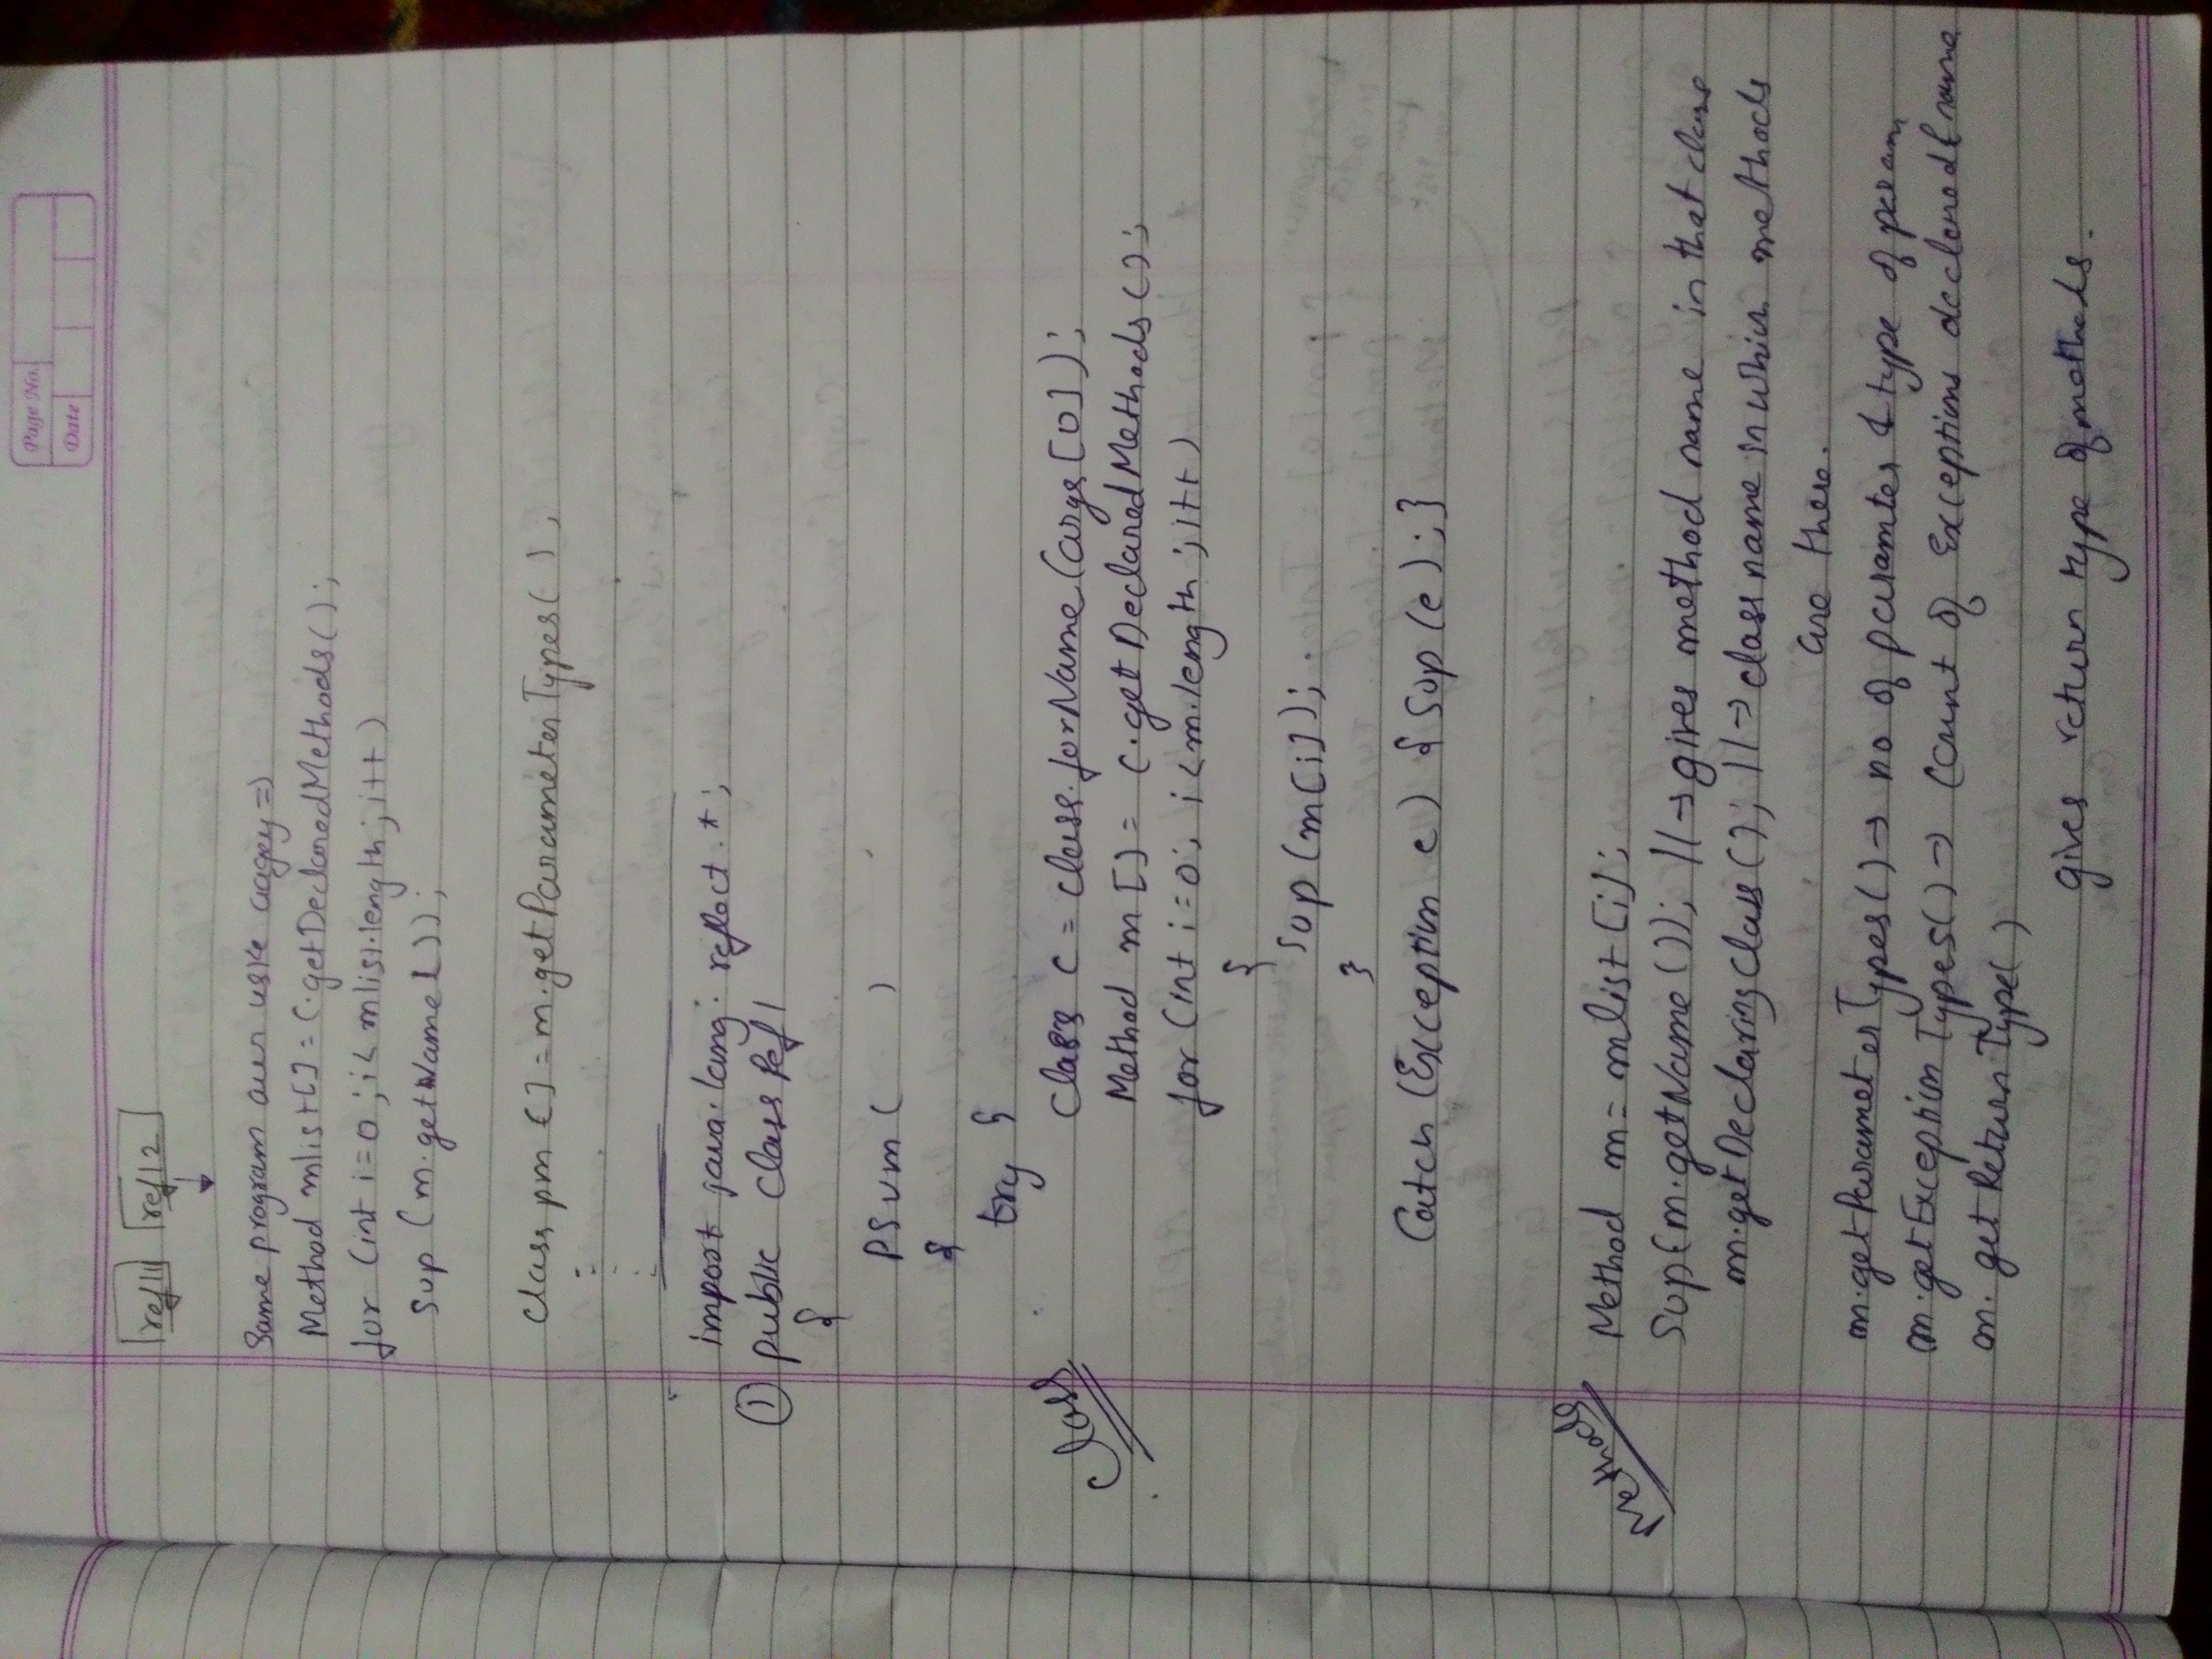 Page No.
Date
ref11 ref12
Same program aur uske aagey =>
Method mlist[] = C.getDeclaredMethods();
for (int i=0 ; i< mlist.length ; i++)
Sup (m.getName());
Class pm [] = m.getParameterTypes();
import java.lang. reflect.*;
① public class Ref1
{
PSvm ( )
{
try {
Class
Class c = class.forName(args[0]);
Method m [] = c.getDeclaredMethods();
for (int i=0; i<m.length ; i++)
{
Sop (m[i]);
}
Catch (Exception e) { Sop (e) ; }
Methods
Method m = mlist [i];
Sop(m.getName()); //→ gives method name in that class
m.getDeclaringClass(); //→ class name in which methods
are there.
m.getParameterTypes() → no of paramter & type of param
m.getExceptionTypes() → Count of Exceptions declared & name
m. getReturnType()
gives return type of methods.